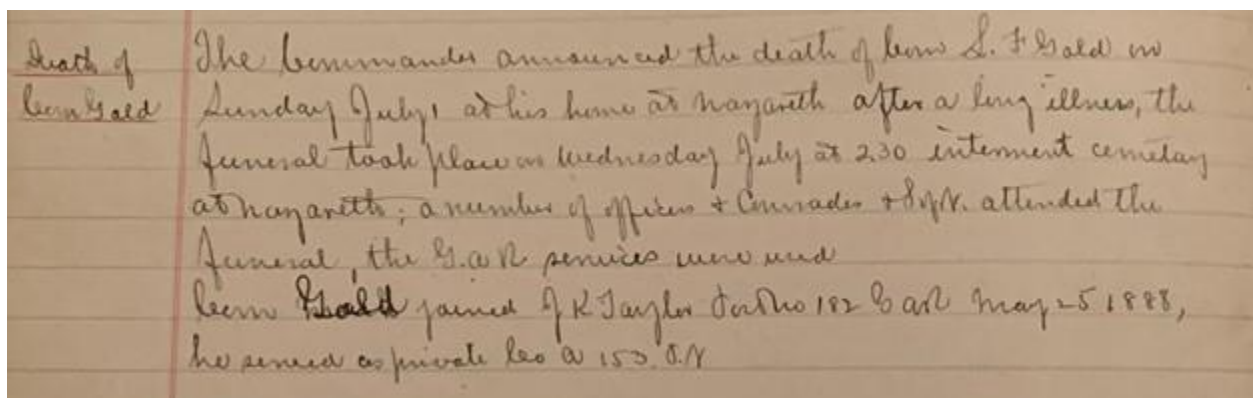 Death of
Com Gald
The Commander announced the death of Com S. F Gald on
Sunday July 1 at his home at Nazareth after a long illness, the
funeral took place on Wednesday July at 2.30 interment cemetay
at Nazareth; a number of officers + Comrades + S of V. attended the
funeral, the G.A R services were used
Com Gald joined J K Taylor Post No 182 G A R May 25 1888,
he served as private Co A 153.